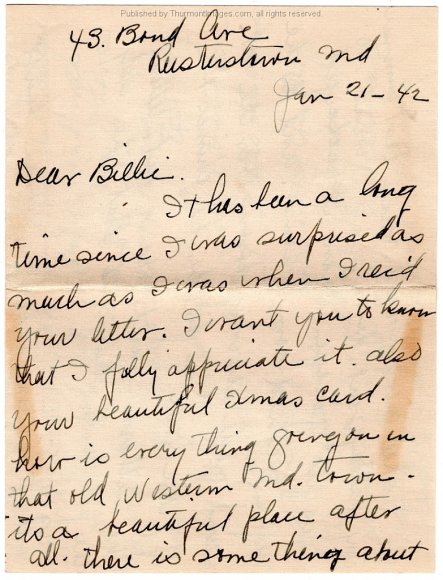 Published by ThurmontImages.com, all rights reserved.
43. Bond Ave
Reisterstown Md
Jan 21-42
Dear Billie.
It has been a long
time since I was surprised as
much as I was when I rec'd
your letter. I want you to know
that I fully appriciate it. also
your beautiful Xmas card.
how is every thing going on in
that old Western Md. town.
its a beautiful place after
all. there is some thing about